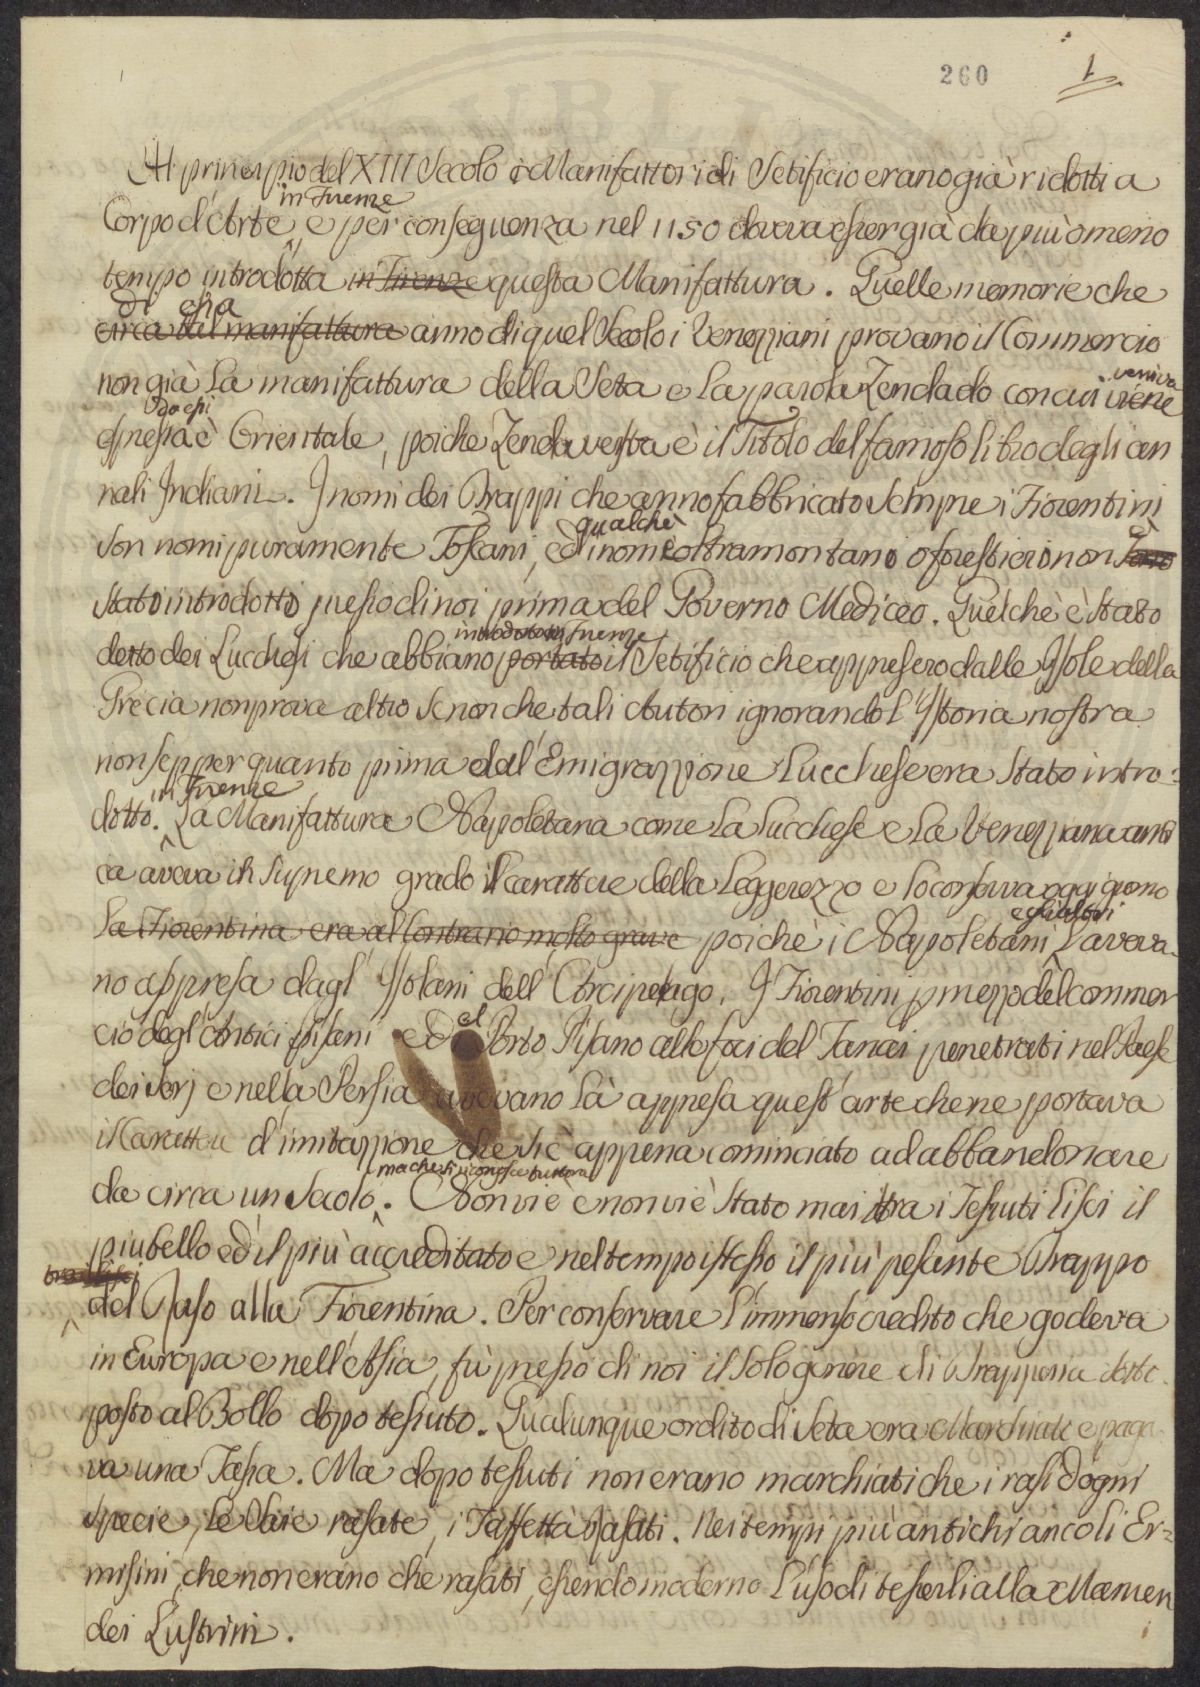 260
1
Al principio del XIII Secolo i Manifattori di Setificio erano già ridotti a
in Firenze
Corpo d'Arte, e per conseguenza nel 1150 doveva esser già da più o meno
tempo introdotta in Firenze questa Manifattura. Quelle memorie che
di essa
circa tal manifattura anno di quel Secolo i Venezziani provano il Commercio
non già la manifattura della Seta e la parola Zendado con cui viene
veniva
espressa è Orientale, poiche Zendavesta è il Titolo del famoso libro degli an
nali Indiani. I nomi dei Drappi che anno fabbricato sempre i Fiorentini
qualche
è
son nomi puramente Toscani, ed i nomi oltramontani o forestieri non sono
stato introdotto presso di noi prima del Governo Mediceo. Quel chè è stato
introdotto in Firenze
detto dei Lucchesi che abbiano portato il Setificio che appresero dalle Isole della
Grecia non prova altro se non che tali Autori ignorando l'Istoria nostra
non sepper quanto prima dell'Emigrazzione Lucchese era stato intro-
in Firenze
dotto. La Manifattura Napoletana come la Lucchese e la Venezzana anti
ca aveva in supremo grado il carattere della Leggerezza e lo conserva oggi giorno
egli altri
la Fiorentina era al Contrario molto grave poichè i Napoletani l'aveva-
no appresa dagl'Isolani dell'Arcipelago. I Fiorentini p mezzo del commer
cio degl'Antichi Pisani e dal Porto Pisano alle foci del Tanai penetrati nel Paese
dei Serj e nella Persia avevano là appresa quest'arte che ne portava
il Carattere d'imitazzione che si è appena cominciato ad abbandonare
ma che si riconosce tuttora
da circa un Secolo. Non vi è e non vi è stato mai tra i Tessuti lisci il
più bello ed il più accreditato e nel tempo istesso il più pesante Drappo
del Raso alla Fiorentina. Per conservare l'immenso credito che godeva
in Europa e nell'Asia, fù presso di noi il solo genere di Drapperia sotto-
posto al Bollo dopo tessuto. Qualunque ordito di Seta era Marchiato e paga
va una Tassa. Ma dopo tessuti non erano marchiati che i rasi d'ogni
specie, le Saie rasate, i Taffettà rasati. Nei tempi più antichi anco li Er-
misini, che non erano che rasati, essendo moderno l'uso di tesserli alla Manier
dei Lustrini.